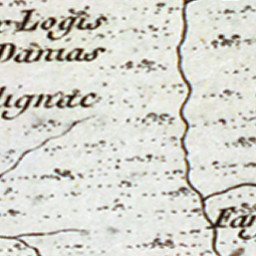 Logis
Danias
lignac
Far